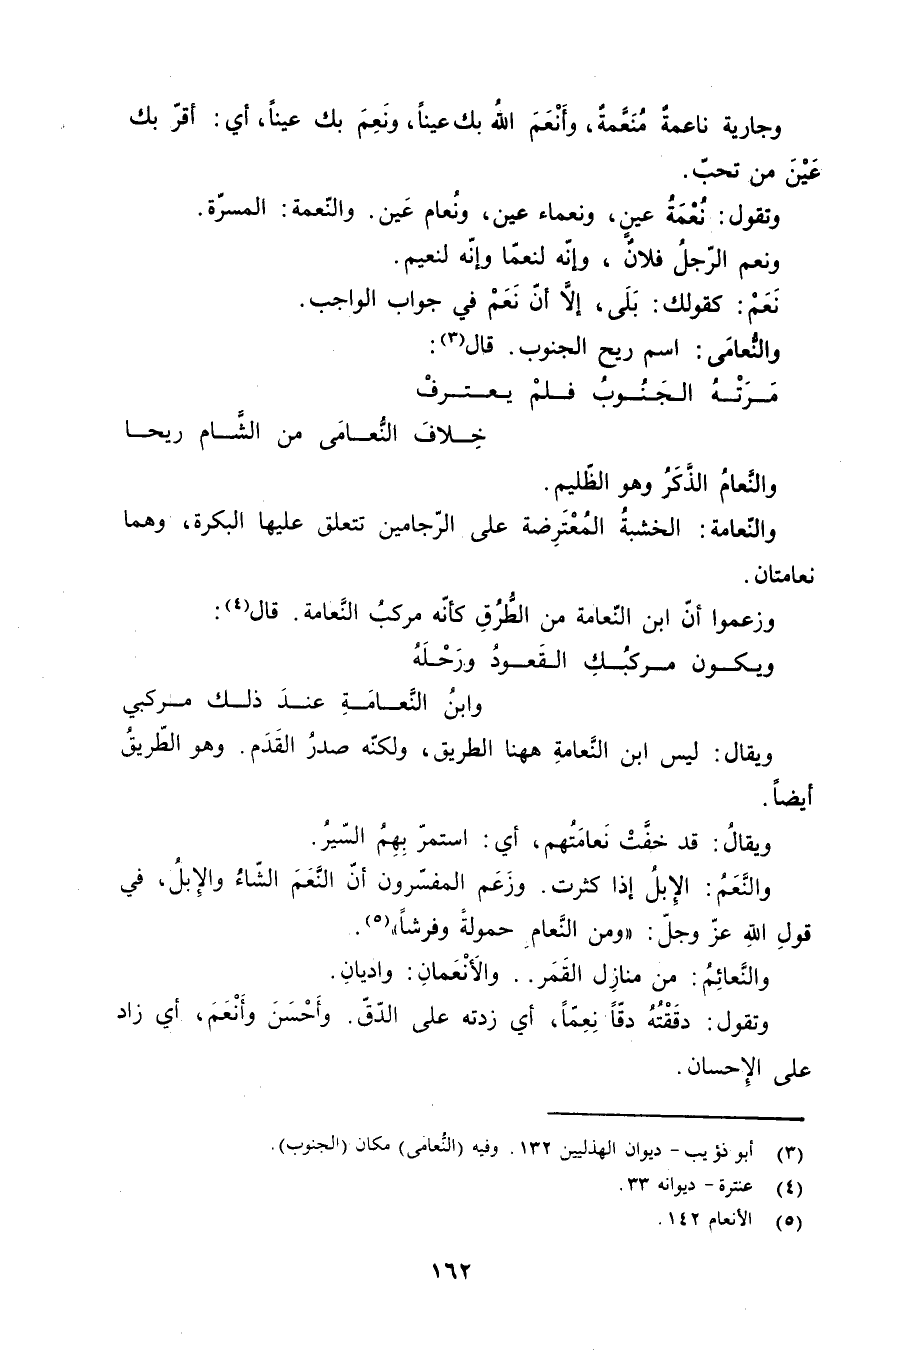 وجارية ناعمةٌ مُنَعَّمةٌ، وأَنْعَمَ اللهُ بك عيناً، ونَعِمَ بك عيناً، أي: أقرّ بك
عَيْنَ من تحبّ.
وتقول: نُعْمَةُ عينٍ، ونعماء عين، ونُعام عَين. والنّعمة: المسرّة.
ونعم الرّجلُ فلانٌ، وإنّه لنعمّا وإنّه لنعيم.
نَعَمْ: كقولك: بَلَى، إلاَّ أنّ نَعَمْ في جواب الواجب.
والنُّعامَى: اسم ريح الجنوب. قال(٣):
مَرَتْـهُ الجَنُـوبُ فلمْ يعـترفْ
خِـلافَ النُّعـامَى من الشَّـام ريحـا
والنَّعامُ الذَّكَرُ وهو الظّليم.
والنّعامة: الخشبةُ المُعْتَرِضة على الرّجامين تتعلق عليها البكرة، وهما
نعامتان.
وزعموا أنّ ابن النّعامة من الطُّرُقِ كأنّه مركبُ النَّعامة. قال(٤):
ويكـون مـركبُـكِ القَعـودُ ورَحْـلَهُ
وابنُ النَّعـامَـةِ عنـدَ ذلـك مـركبي
ويقال: ليس ابن النَّعامةِ ههنا الطريق، ولكنّه صدرُ القَدَم. وهو الطّريقُ
أيضاً.
ويقالُ: قد خفَّتْ نَعامَتُهم، أي: استمرّ بِهِمُ السّيرُ.
والنَّعَمُ: الإِبلُ إذا كثرت. وزَعَم المفسّرون أنّ النَّعَمَ الشّاءُ والإِبلُ، في
قولِ اللهِ عزّ وجلّ: «ومن النَّعام حمولةً وفرشاً»(٥).
والنَّعائِمُ: من منازِل القَمَر.. والأَنْعَمانِ: واديانِ.
وتقول: دقَقْتُهُ دقّاً نِعِمّاً، أي زدته على الدّقّ. وأَحْسَنَ وأَنْعَمَ، أي زاد
على الإِحسان.
(٣) أبو ذؤيب - ديوان الهذليين ١٣٢. وفيه (النُّعامى) مكان (الجنوب).
(٤) عنترة - ديوانه ٣٣.
(٥) الأنعام ١٤٢.
١٦٢